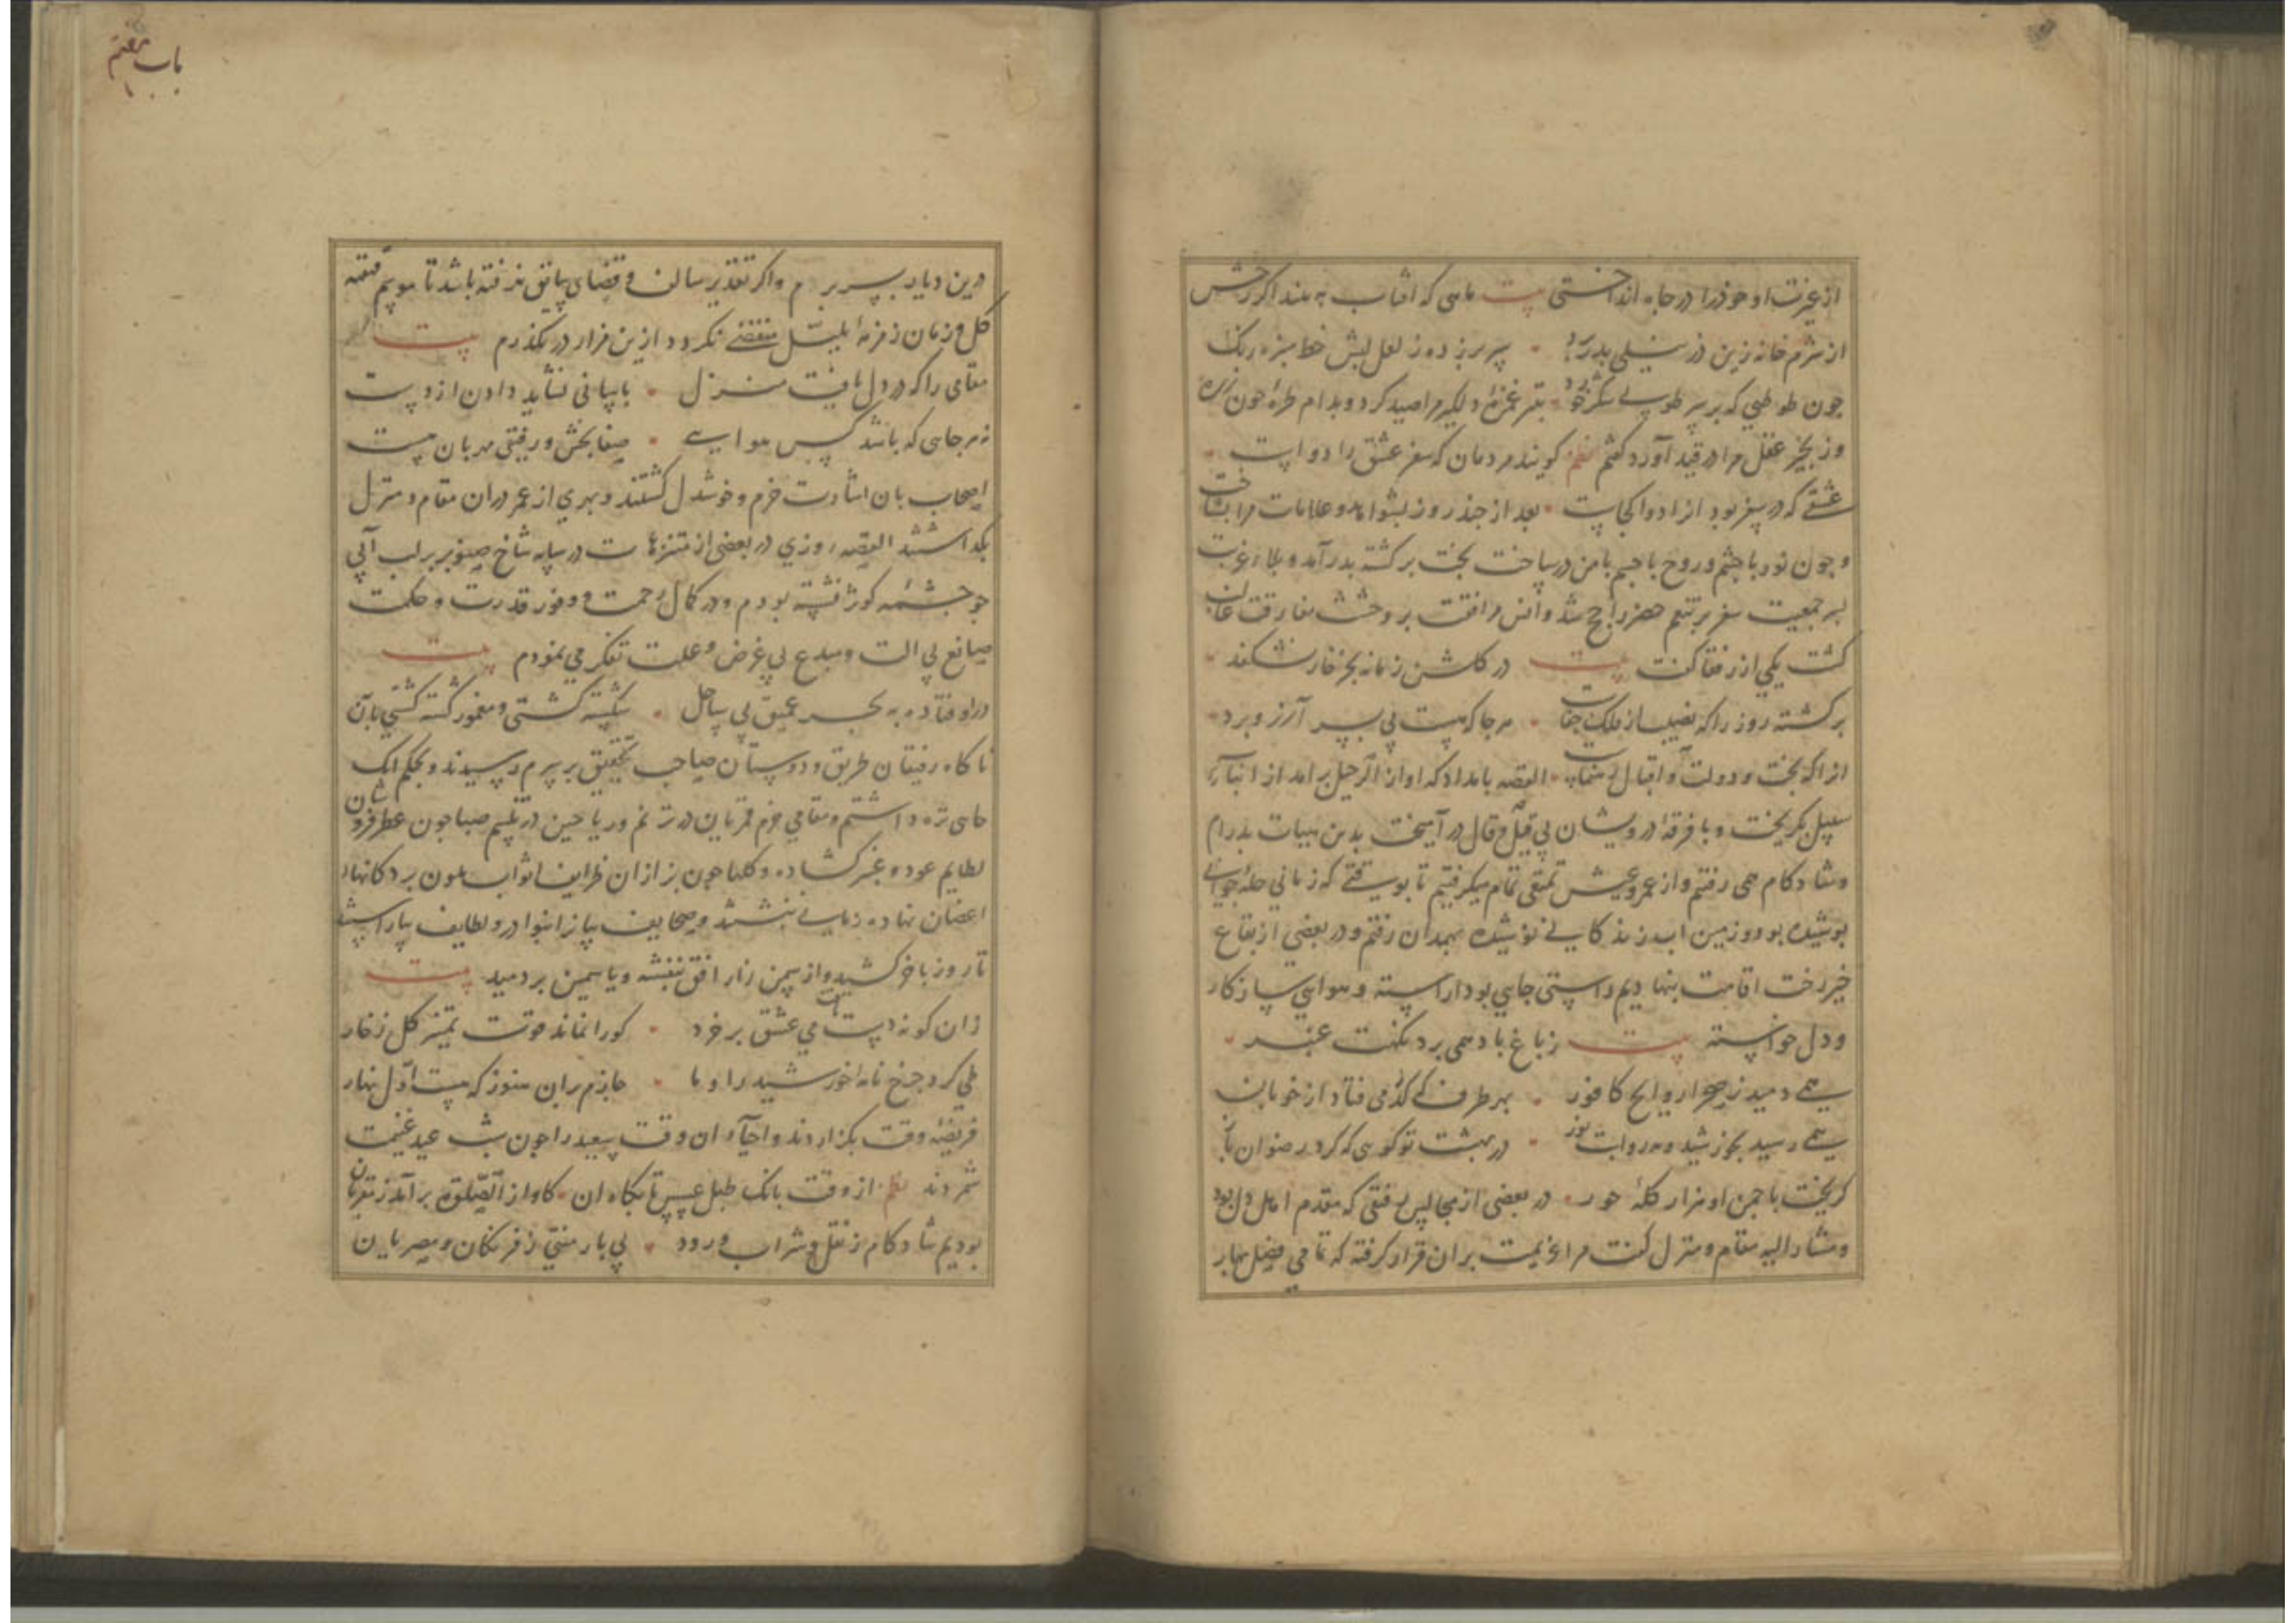 از غیرت او خود را در چاه انداختی بیت ماهی که افتاب به بیند اگر رخش
از شرم خانه زین در نیلی بدرد • سر برزده ز لعل لبش خط سبز رنگ
چون طوطیی که بر سر طوبی شکر خورد بتیر غمزهٔ دلم را صید کرد و بدام طرهٔ چون
وزنجیر عقل مرا در قید آورد گفتم نظم گویند مردمان که سفر عشق را دواست •
عشقی که در سفر بود انرا دوا کجاست • بعد از چند روز بشواهد و علامات مرا بشناخت
و چون نور با چشم و روح با جسم با من در ساخت بخت برگشته بدر آمد و بلاء غربت
بر جمعیت سفر بر تنعم حضر راجح شد و انس مرافقت بر وحشت مفارقت غالب
گشت یکی از رفقا گفت بیت در گلشن زمانه بجز خار نشکفد •
برگشته روز را که نصیب از فلک جفاست • هرجا که هست پی سپر آرزو برد •
انرا که بخت و دولت و اقبال رهنماست • القصه بامداد که اواز الرحیل برامد از ابناء
سبیل بگریخت و با فرقهٔ درویشان بی قیل و قال در آمیخت بدین هیات پدرام
و شادکام همی رفتم و از عمر و عیش تمتعی تمام میگرفتیم تا بوقتی که زمانی حلهٔ جوانی
پوشیده بود و زمین اب زندکانی نوشیده بهمدان رفتم و در بعضی از بقاع
خیر رخت اقامت بنهادیم راستی جایی بود اراسته و هوایی سازکار
و دل خواسته بیت ز باغ باد همی برد نکهت عنبر •
همی دمید ز صحرا روایح کافور • بهر طرف که گذر می فتاد از خوبان
همی رسید بخورشید و مه روایت نور • در بهشت تو گویی که کرد رضوان باز
گریخت با چمن او هزار کلهٔ حور • در بعضی از مجالس رفیقی که مقدم اهل دل بود
و مشار الیه مقام و منزل گفت مرا عزیمت بران قرار گرفته که تمامی فصل بهار
باب هفتم
درین دیار بسر برم و اگر تقدیر سالف و قضای سابق نرفته باشد تا موسم قهقههٔ
گل و زمان زمزمهٔ بلبل منقضی نگردد ازین مزار درنگذرم بیت
مقامی را که در دل یافت منزل • باسانی نشاید دادن از دست
نه هر جایی که باشد کس هوایی • صفا بخش و رفیقی مهربان هست
اصحاب بان اشارت خرم و خوشدل گشتند و بهری از عمر دران مقام و منزل
بگذاشتند القصه روزی در بعضی از متنزهات در سایه شاخ صنوبر بر لب آبی
چو چشمه کوثر نشسته بودم و در کمال رحمت و وفور قدرت و حکمت
صانع بی الت و مبدع بی غرض و علت تفکر می نمودم بیت
در اوفتاده به بحر عمیق بی ساحل • شکسته کشتی و مغمور گشته کشتی بان
ناگاه رفیقان طریق و دوستان صاحب تحقیق بر سرم رسیدند و بحکم انک
جای نزه داشتم و مقامی خرم قمریان در ترنم و ریاحین در تبسم صبا چون عطر فروشان
لطایم عود و عنبر گشاده و گلها چون بزازان ظرایف اثواب ملون بر دکانهاء
اغصان نهاده زمانی بنشستند و صحایف را بانوادر و لطایف بیاراستند
تا روز باخر کشید و از سمن زار افق بنفشه و یاسمین بردمید بیت
زان گونه دست می عشق بر خرد • کو را نماند قوت تمییز گل ز خار
طی کرد چرخ نامهٔ خورشید را و ما • جازم بران هنوز که هست اول نهار
فریضهٔ وقت بگزاردند و احیاء ان وقت سعید را چون شب عید غنیمت
شمردند نظم از وقت بانک طبل عسس تا بگاه ان • کاواز الصلوة برآمد ز
بودیم شادکام ز نقل و شراب و رود • بی بار منتی ز فرنکان و مصریان